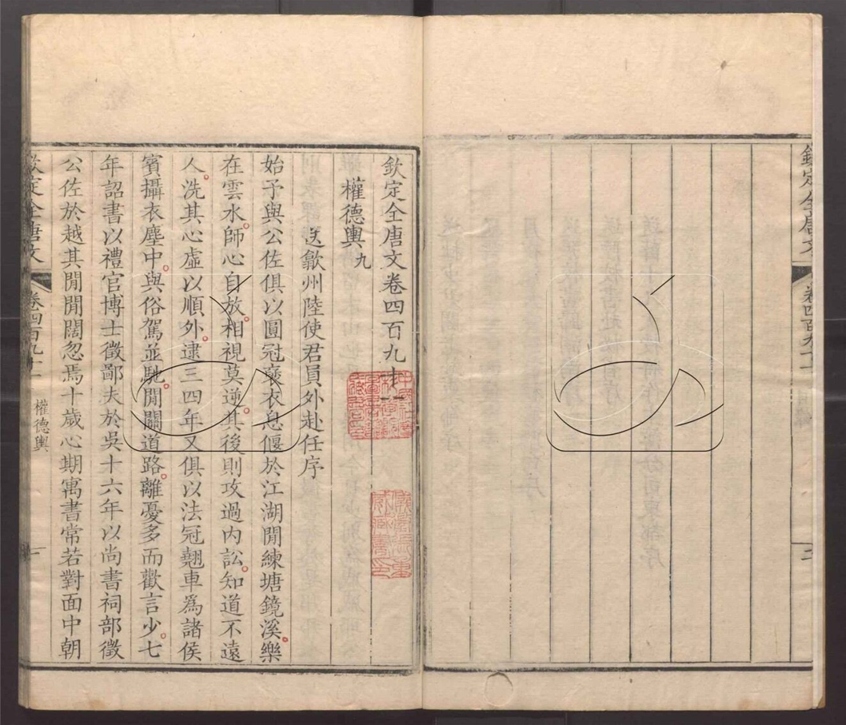 欽定全唐文
欽定全唐文卷四百九十一
權德輿九
送歙州陸使君員外赴任序
始予與公佐俱以圓冠褒衣息偃於江湖閒練塘鏡溪樂
在雲水師心自放相視莫逆其後則攻過內訟知道不遠
人洗其心虛以順外逮三四年又俱以法冠翹車爲諸侯
賓攝衣塵中與俗駕並馳閒關道路離憂多而歡言少七
年詔書以禮官博士徵鄙夫於吳十六年以尚書祠部徵
公佐於越其閒閒闊忽焉十歲心期寓書常若對面中朝
欽定全唐文
卷四百九十一
權德輿
一